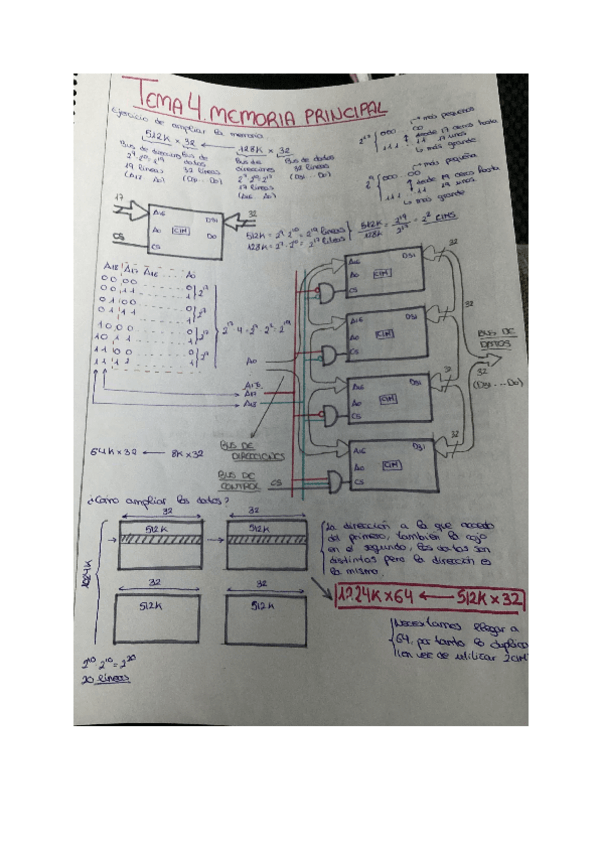 TEMA 4. MEMORIA PRINCIPAL
Ejercicio de ampliar la memoria
512K x 32 ← 128K x 32
Bus de direcciones
2⁹ 2¹⁰ = 2¹⁹
19 líneas
(A18 A0)
Bus de datos
32 líneas
(D31 ... D0)
Bus de direcciones
2⁷ 2¹⁰ 2¹⁷
17 líneas
(A16 A0)
Bus de datos
32 líneas
(D31 ... D0)
2¹⁷ 000 00 más pequeños
desde 17 ceros hasta
111 1 17 unos
más grande
2¹⁹ 000 00 más pequeña
desde 19 ceros hasta
111 1 19 unos
más grande
17
A16 D31
A0 CIM D0
CS
32
512K = 2⁹ · 2¹⁰ = 2¹⁹ líneas
128K = 2⁷ · 2¹⁰ = 2¹⁷ líneas
512K / 128K = 2¹⁹ / 2¹⁷ = 2²
A18 A17 A16 A0
00 00 0
00 11 1 2¹⁷
01 00 0
01 11 1 2¹⁷
10 00 0
10 11 1 2¹⁷
11 00 0
11 11 1 2¹⁷
2¹⁷ · 4 = 2¹⁷ 2² = 2¹⁹
A0
A16
A17
A18
A16 D31
A0 CIM
CS
32
A16 D31
A0 CIM
CS
32
A16 D31
A0 CIM
CS
A16 D31
A0 CIM
CS
32
BUS DE DATOS
32
(D31 ... D0)
BUS DE DIRECCIONES
BUS DE CONTROL CS
64K x 32 ← 8K x 32
¿Cómo ampliar los datos?
32 32
512K 512K
1024K
32 32
512K 512K
2¹⁰ · 2¹⁰ = 2²⁰
20 líneas
La dirección a la que accedo
del primero, también la cojo
en el segundo, los datos son
distintos pero la dirección es
la misma.
1024K x 64 ← 512K x 32
Necesitamos llegar a
64, por tanto lo duplico
en vez de utilizar 2